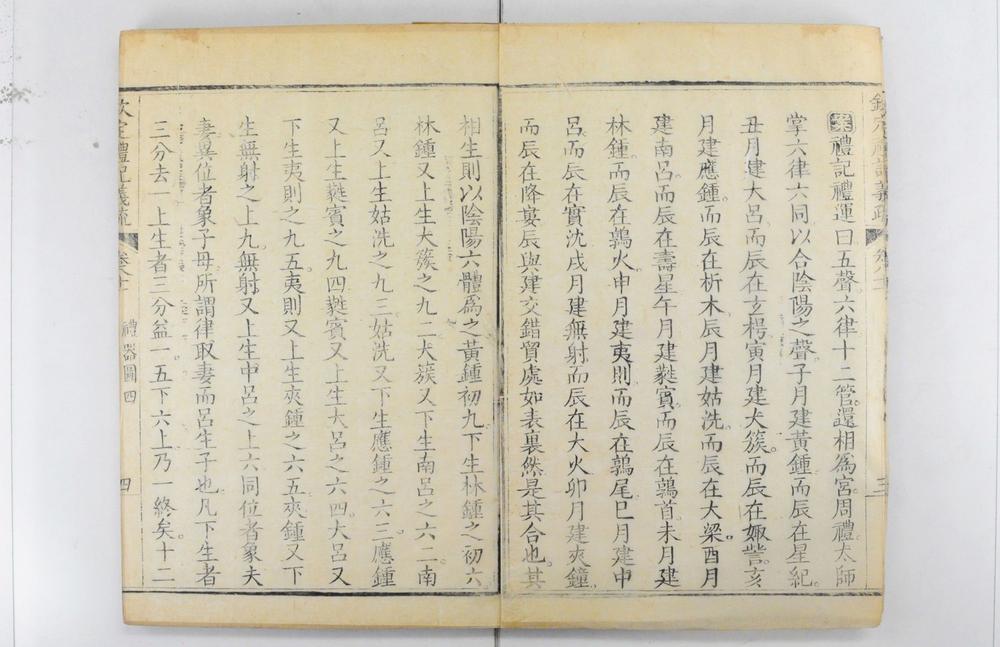 欽定禮記義疏
案禮記禮運曰五聲六律十二管還相爲宮周禮大師
掌六律六同以合陰陽之聲子月建黃鍾而辰在星紀
丑月建大呂而辰在玄枵寅月建大簇而辰在娵訾亥
月建應鍾而辰在析木辰月建姑洗而辰在大梁酉月
建南呂而辰在壽星午月建蕤賓而辰在鶉首未月建
林鍾而辰在鶉火申月建夷則而辰在鶉尾巳月建中
呂而辰在實沈戌月建無射而辰在大火卯月建夾鐘
而辰在降婁辰與建交錯貿處如表裏然是其合也其
相生則以陰陽六體爲之黃鍾初九下生林鍾之初六
林鍾又上生大簇之九二大簇又下生南呂之六二南
呂又上生姑洗之九三姑洗又下生應鍾之六三應鍾
又上生蕤賓之九四蕤賓又上生大呂之六四大呂又
下生夷則之九五夷則又上生夾鍾之六五夾鍾又下
生無射之上九無射又上生中呂之上六同位者象夫
妻異位者象子母所謂律取妻而呂生子也凡下生者
三分去一上生者三分益一五下六上乃一終矣十二
欽定禮記義疏 禮器圖四 四